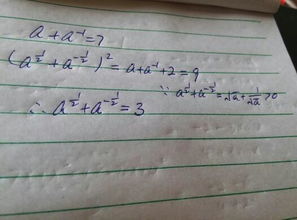 a + a⁻¹ = 7
(a^{1/2} + a^{-1/2})² = a + a⁻¹ + 2 = 9
∵ a^{1/2} + a^{-1/2} = √a + 1/√a > 0
∴ a^{1/2} + a^{-1/2} = 3